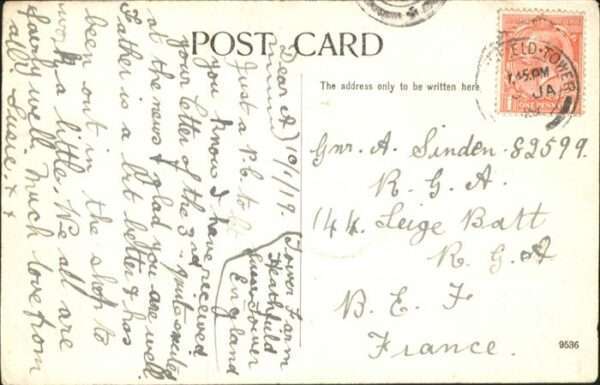 POST CARD
The address only to be written here
FIELD-TOWER
7.45PM
JA
1 ONE PENNY
Gnr. A. Sinden 82599.
R. G. A.
144. Leige Batt
R. G. A
B. E. F
France.
9586
Tower Farm
Heathfield
Tower
England
10/1/19.
Dear A
Just a P.b. to
you know I have received
your letter of the 3rd. quite excited
at the news & glad you are well.
Father is a bit better & has
been out in the shop to
work a little. We all are
fairly well. Much love from
all Susie. x x